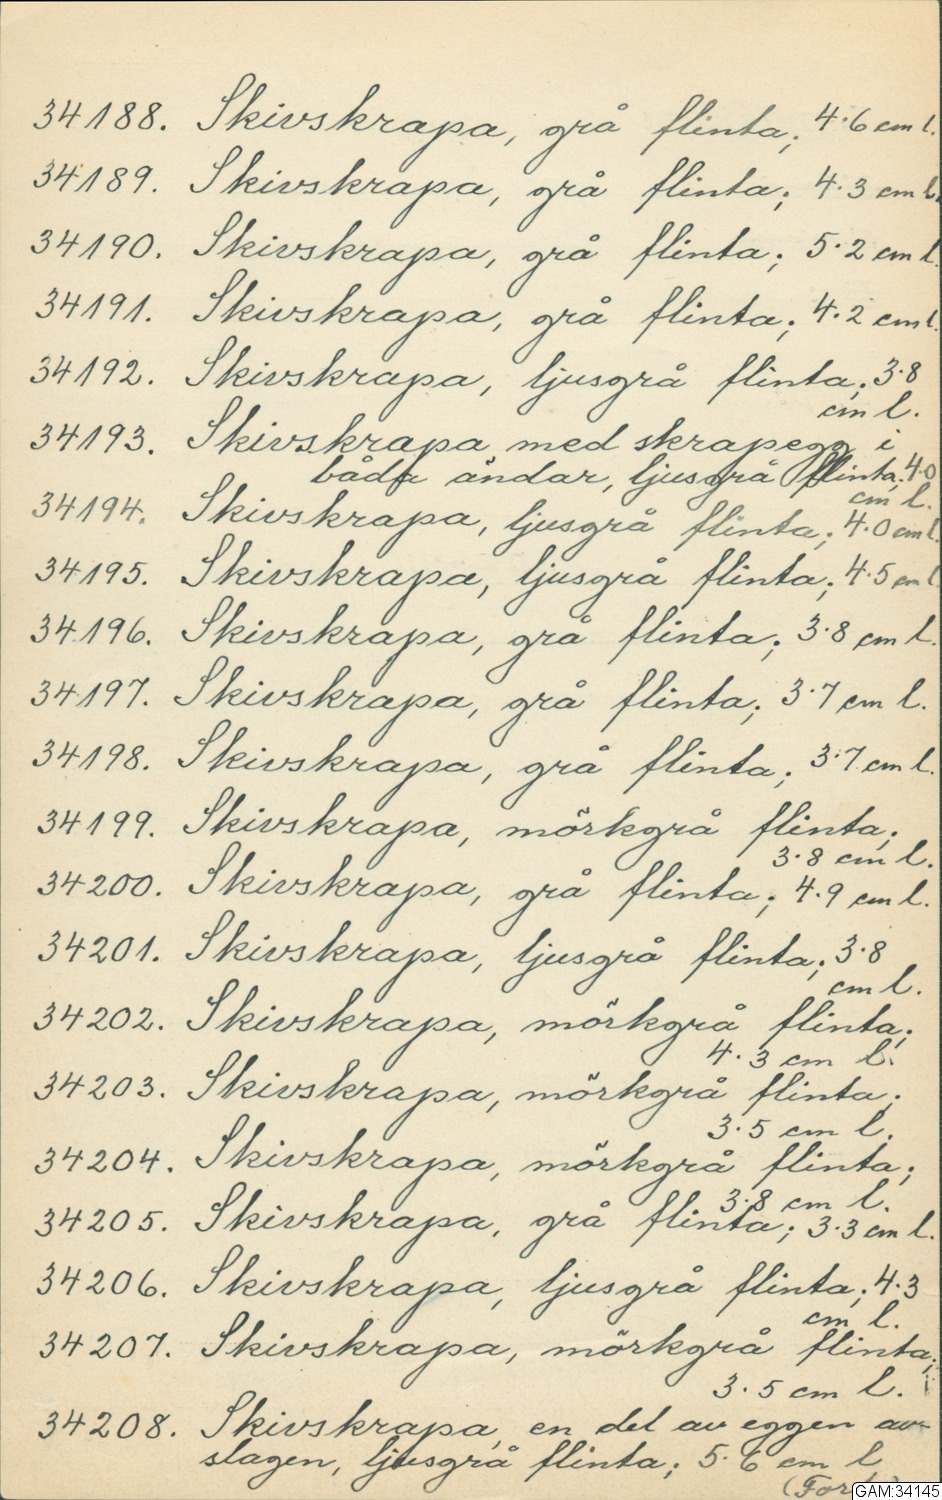 34188. Skivskrapa, grå flinta; 4.6 cm l.
34189. Skivskrapa, grå flinta; 4.3 cm l.
34190. Skivskrapa, grå flinta; 5.2 cm l.
34191. Skivskrapa, grå flinta; 4.2 cm l.
34192. Skivskrapa, ljusgrå flinta; 3.8
cm l.
34193. Skivskrapa med skrapegg i
båda ändar, ljusgrå flinta; 4.0
cm l.
34194. Skivskrapa, ljusgrå flinta; 4.0 cm l.
34195. Skivskrapa, ljusgrå flinta; 4.5 cm l
34196. Skivskrapa, grå flinta; 3.8 cm l.
34197. Skivskrapa, grå flinta; 3.7 cm l.
34198. Skivskrapa, grå flinta; 3.7 cm l.
34199. Skivskrapa, mörkgrå flinta;
3.8 cm l.
34200. Skivskrapa, grå flinta; 4.9 cm l.
34201. Skivskrapa, ljusgrå flinta; 3.8
cm l.
34202. Skivskrapa, mörkgrå flinta;
4.3 cm l.
34203. Skivskrapa, mörkgrå flinta;
3.5 cm l.
34204. Skivskrapa, mörkgrå flinta;
3.8 cm l.
34205. Skivskrapa, grå flinta; 3.3 cm l.
34206. Skivskrapa, ljusgrå flinta; 4.3
cm l.
34207. Skivskrapa, mörkgrå flinta;
3.5 cm l.
34208. Skivskrapa, en del av eggen av-
slagen, ljusgrå flinta; 5.6 cm l
GAM:34145